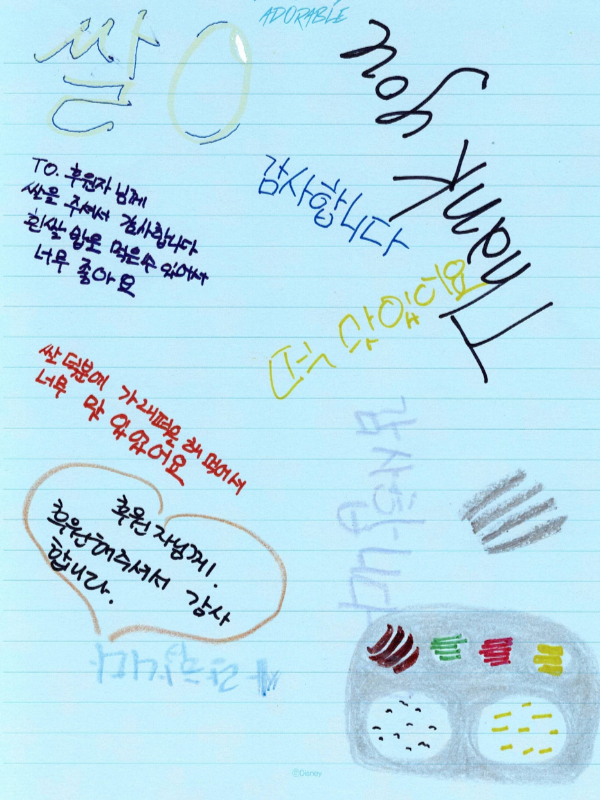 ADORABLE
쌀
Thank you
감사합니다
TO. 후원자님께
쌀을 주셔서 감사합니다
흰쌀 밥도 먹을수 있어서
너무 좋아요
떡 맛있어요
쌀 덕분에 가래떡을 해 먹어서
너무 맛 있었어요
감사합니다
후원자님께!
후원해주셔서 감사
합니다.
사랑합니다
©Disney